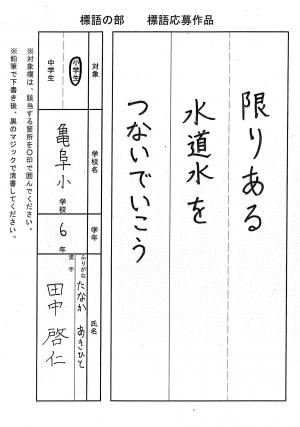 標語の部 標語応募作品
限りある
水道水を
つないでいこう
対象
小学生
中学生
学校名
亀阜小学校
学年
6年
氏名
ふりがな たなか あきひと
漢字 田中 啓仁
※対象欄は、該当する箇所を○印で囲んでください。
※鉛筆で下書き後、黒のマジックで清書してください。